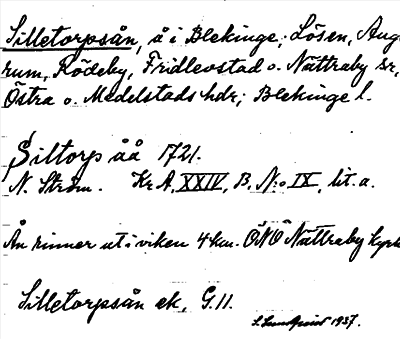 Silletorpsån, å i Blekinge; Lösen, Aug-
rum, Rödeby, Fridlevstad o. Nättraby sr,
Östra o. Medelstads hdr; Blekinge l.
Siltorp åå 1721.
N. Ström. Kr A, XXIV, B. N:o IX, lit. a.
Ån rinner ut i viken 4 km. ÖNÖ Nättraby kyrk
Silletorpsån ek. G.11.
1937.